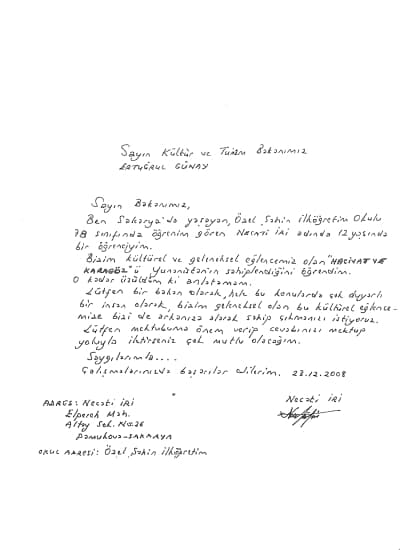 Sayın Kültür ve Turizm Bakanımız
ERTUĞRUL GÜNAY
Sayın Bakanımız,
Ben Sakarya'da yaşayan, Özel Şahin İlköğretim Okulu
7B sınıfında öğrenim gören Necati İRİ adında 12 yaşında
bir öğrenciyim.
Bizim kültürel ve geleneksel eğlencemiz olan "HACİVAT VE
KARAGÖZ" ü Yunanistan'ın sahiplendiğini öğrendim.
O kadar üzüldüm ki anlatamam.
Lütfen bir bakan olarak, hele bu konularda çok duyarlı
bir insan olarak, bizim geleneksel olan bu kültürel eğlence-
mize bizi de arkanıza alarak sahip çıkmanızı istiyoruz.
Lütfen mektubuma önem verip cevabınızı mektup
yoluyla iletirseniz çok mutlu olacağım.
Saygılarımla....
Çalışmalarınızda başarılar dilerim. 23.12.2008
Necati İRİ
ADRES: Necati İRİ
Elperek Mah.
Altay Sok. No:26
Pamukova-SAKARYA
OKUL ADRESİ: Özel Şahin İlköğretim